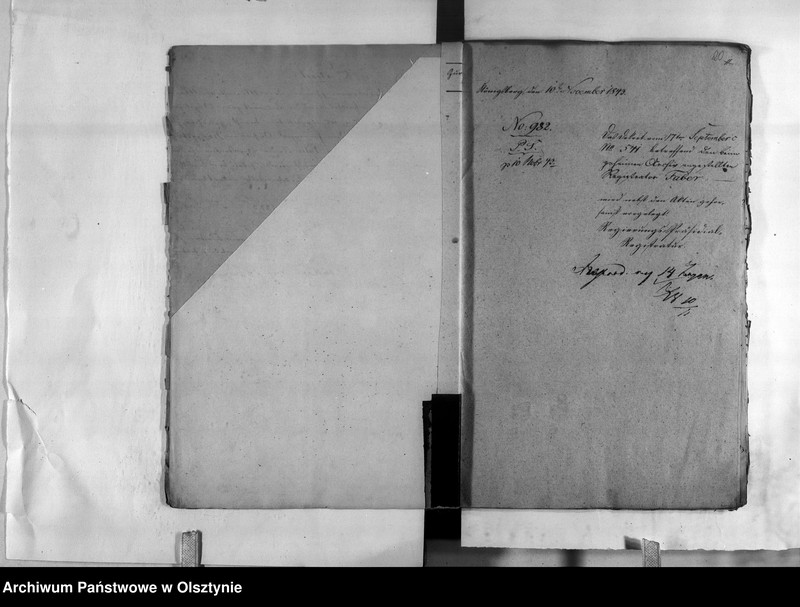 20
Königsberg, den 10t November 1843.
No. 932.
P. S.
Das Dekret vom 17ten September c
No. 541 betreffend den beim
geheimen Archiv angestellten
Registrator Faber.
wird nebst den Akten gehor-
samst vorgelegt
Regierungs-Präsidial-
Registratur.
14 Tagen.
10
Archiwum Państwowe w Olsztynie